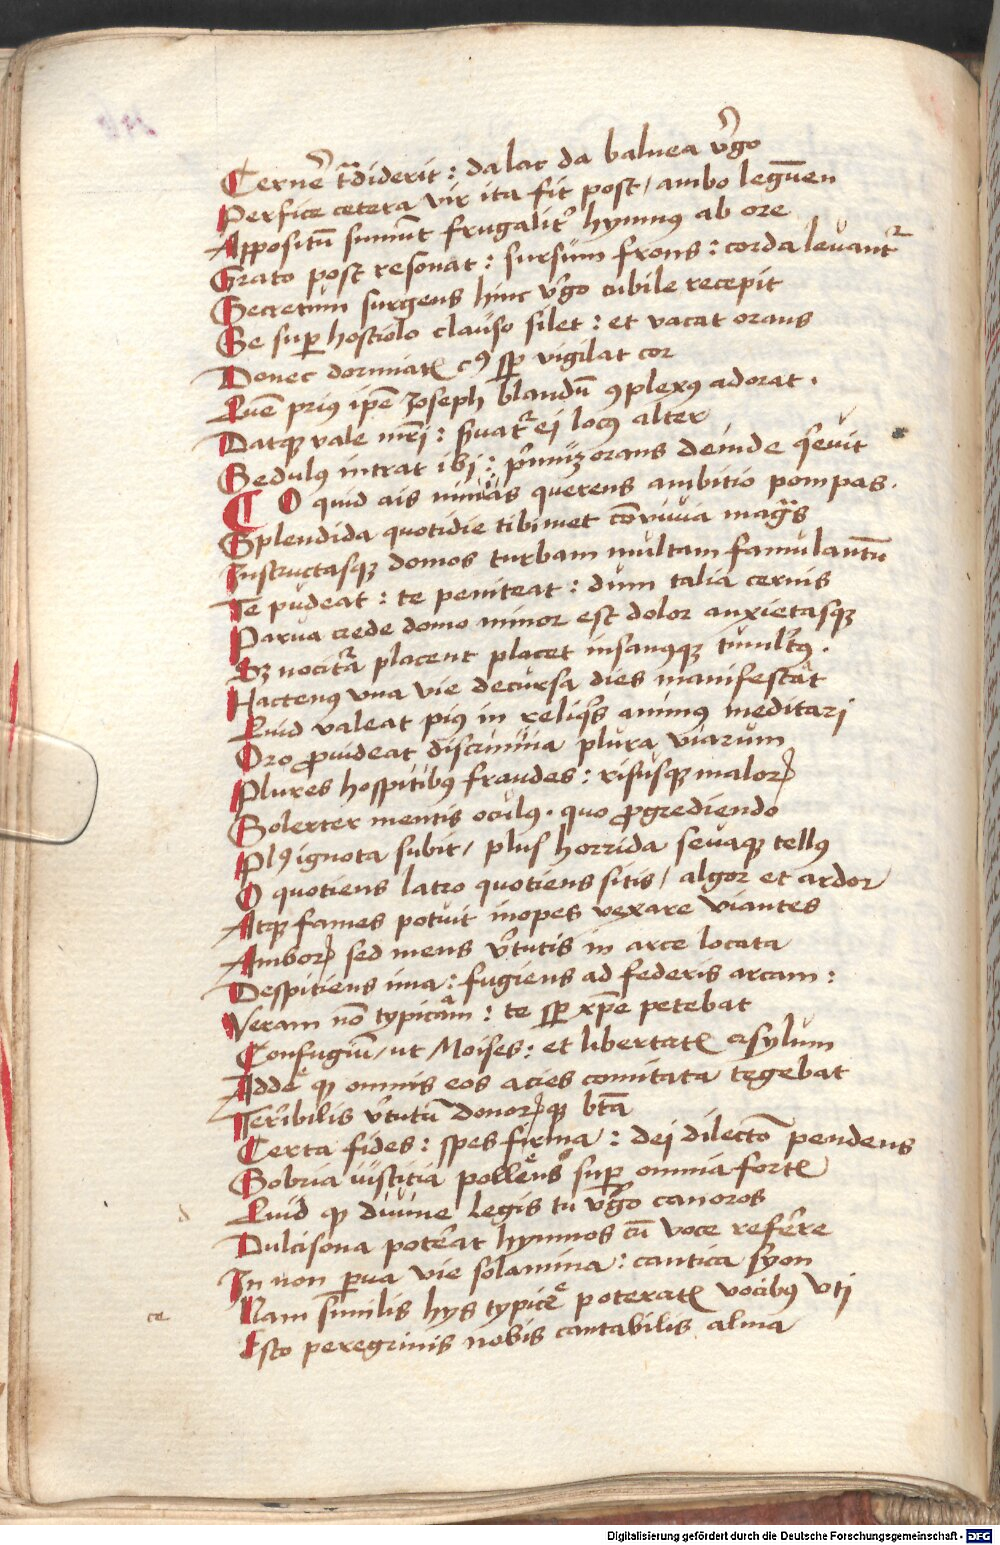 Cerne͛ t̃diderit : da lac da balnea v͛go
Perfice cetera vir ita fit post / ambo leguͫen
Appositũ sumũt frugalit͛ hymnꝯ ab ore
Grato post resonat : sursum frons : corda levantᷣ
Secretum surgens hinc v͛go cubile recepit
Se suꝑ hostiolo clauso silet : et vacat orans
Donec dormiatꝭ cꝰ sꝑ vigilat cor
Quẽ priꝯ ip̃e Joseph blandũ ꝯplexꝯ adorat .
Datqꝫ vale mr̃i : s͛uatᷣ ei locꝯ alter
Sedulꝯ intrat ibj : orans deinde q̇evit
O quid ais nimias querens ambitio pompas .
Splendida quotidie tibimet cõviuia mag̈s
Instructasqꝫ domos turbam multam famulantũ
Te pudeat : te peniteat : dum talia cernis
Parua crede domo minor est dolor anxietasqꝫ
Sꝫ nocitᷓa placent placet insanꝯqꝫ tumlt͛ꝯ .
Hactenꝯ vna vie decursa dies manifestat
Quid valeat piꝯ in reliq̇s animꝯ meditari
Oro ꝓuideat discrimina plura viarum
Plures hospitibꝯ fraudes : risusqꝫ maloꝝ
Solerter mentis oculꝯ . quo ꝓgrediendo
Plꝰ ignota subit / plus horrida sevaqꝫ tellꝯ
O quotiens latro quotiens sitis / algor et ardor
Atqꝫ fames potuit inopes vexare viantes
Amboꝝ sed mens v͛tutis in arce locata
Despitiens ima : fugiens ad federis arcam :
Veram nõ typicam : te sꝑ xp̃e petebat
Confugiũ / ut Moises : et libertatꝭ asylum
Adde qꝫ omnis eos acies comitata tegebat
Ter͛ibilis v͛tutũ donoꝝqꝫ bt̃a
Certa fides : spes firma : dei dilectõ pendens
Sobria iusticia pollens suꝑ omnia fortꝭ
Quid qꝫ diuine legis tu v͛go canoros
Dulcisona pot͛at hymnos cũ voce refer͛e
In non ꝑua vie solamina : cantica syon
Nam similis hys typice poteratꝭ vocibꝯ vti
ce
Esto peregrinis nobis cantabilis alma
Digitalisierung gefördert durch die Deutsche Forschungsgemeinschaft - DFG